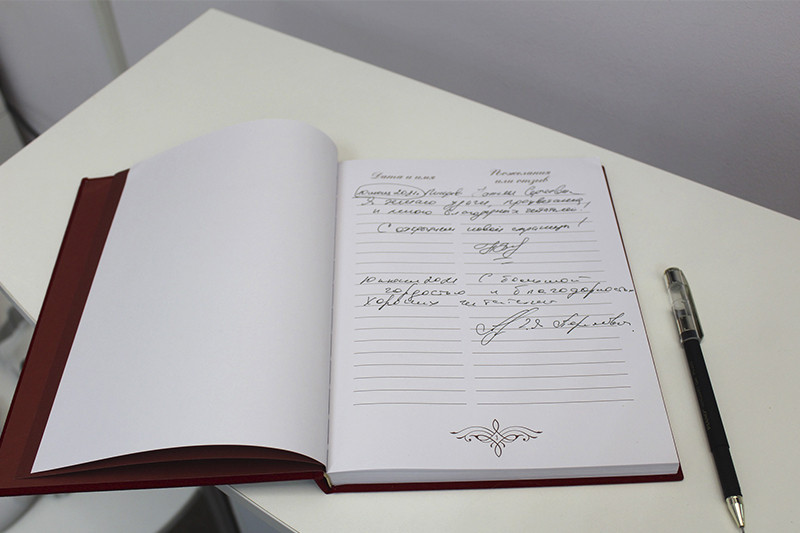 Дата и имя
Пожелания
или отзыв
10 июня 2021
Я желаю удачи, процветания
и много благодарных читателей!
С открытием новой страницы!
10 июня 2021 С большой
гордостью и благодарностью
хороших читателей